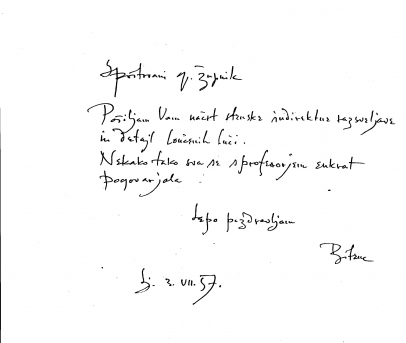 Spoštovani g. Župnik
Pošiljam Vam načrt stenske indirektne razsvetljave
in detajl bočnih luči.
Nekako tako sva se s profesorjem enkrat
pogovarjala
Lepo pozdravljam
Lj. 3. VII. 57.